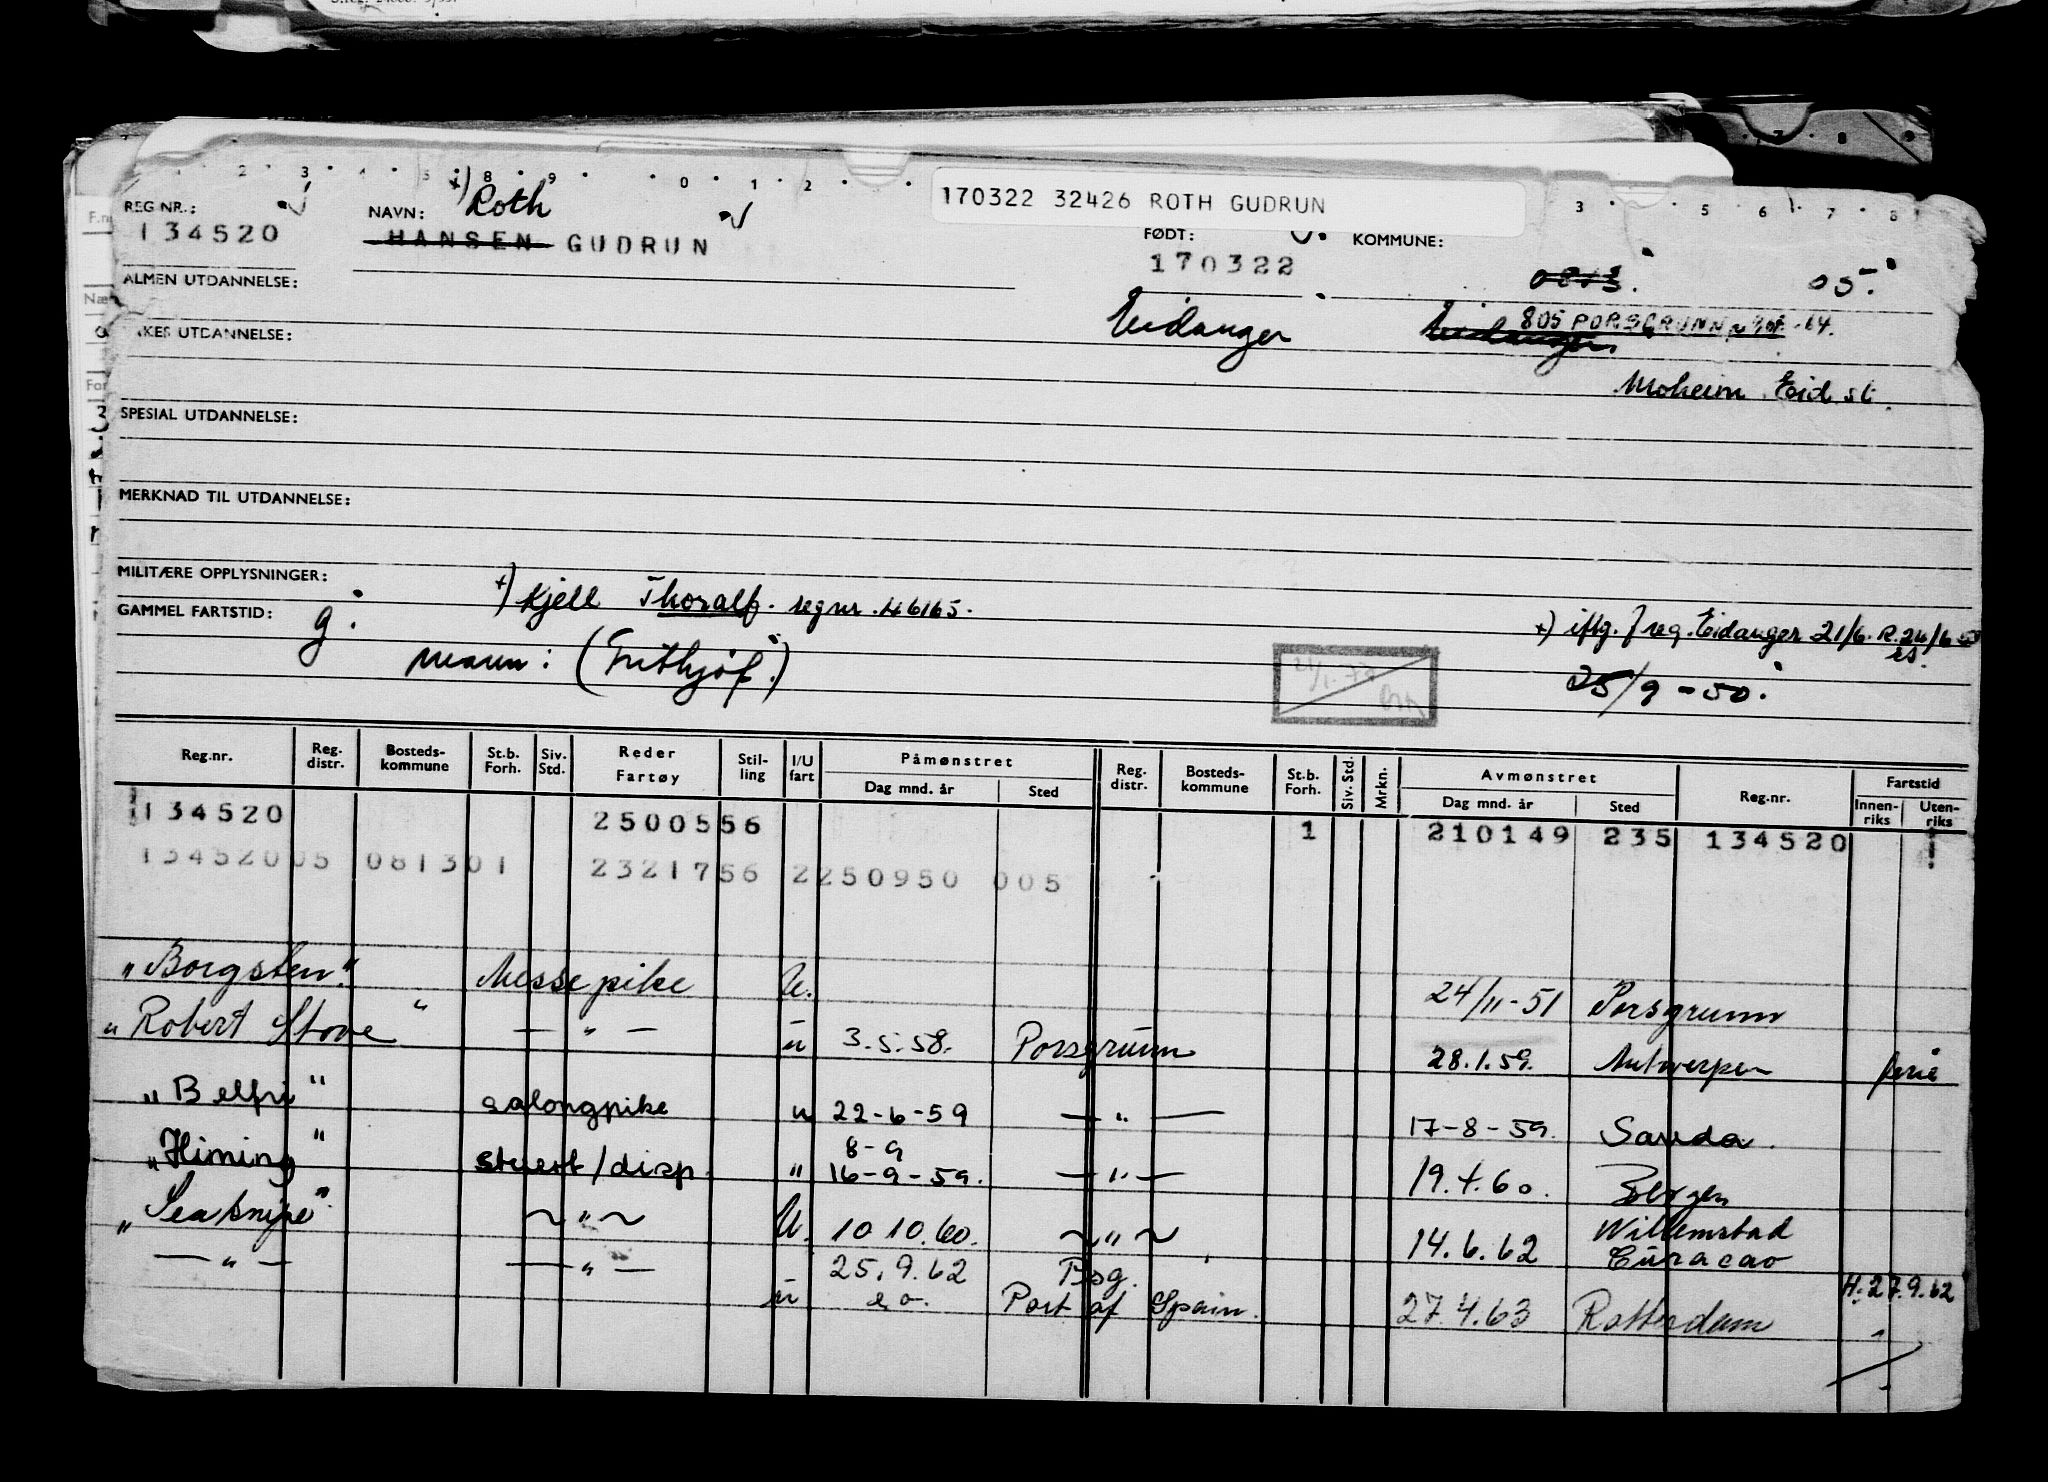 170322 32426 ROTH GUDRUN
REG NR.:
134520
NAVN: +) Roth
HANSEN GUDRUN
FØDT:
170322
KOMMUNE:
0813. 05.
ALMEN UTDANNELSE:
Eidanger
805 PORSGRUNN
Eidanger
Moheim Eid. st.
SPESIAL UTDANNELSE:
MERKNAD TIL UTDANNELSE:
MILITÆRE OPPLYSNINGER:
+) Kjell Thoralf. regnr. 46165.
GAMMEL FARTSTID: g.
+) iflg. reg. Eidanger 21/6.
mann: (Frithjof.)
25/9-50.
Reg.nr. Reg. distr. Bosteds-kommune St.b. Forh. Siv. Std. Reder Fartøy Stil-ling I/U fart Påmønstret Dag mnd. år Sted Reg. distr. Bosteds-kommune St.b. Forh. Siv. Std. Mrkn. Avmønstret Dag mnd. år Sted Reg.nr. Fartstid Innen-riks Uten-riks
134520 2500556 1 210149 235 134520
13452005 081301 2321756 2250950 005
"Borgsten" Messepike U. 24/11-51 Porsgrunn
"Robert Stove" — " — u 3.5.58. Porsgrunn 28.1.59. Antwerpen ferie
"Belfri" salongpike u 22-6-59 — " — 17-8-59. Sauda.
8-9
"Himing" stuert/disp. " 16-9-59. — " — 19.4.60. Bergen
"Seasnipe" ~ " ~ U. 10.10.60. ~ " ~ 14.6.62 Willemstad Curacao
— " — — " — 25.9.62 Psg. H. 27.9.62
u Port of Spain. 27.4.63 Rotterdam "